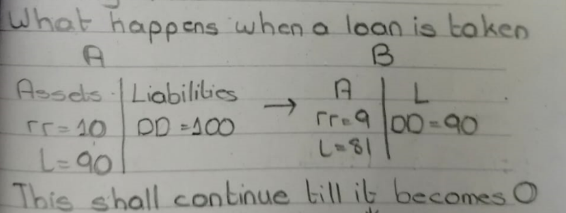 What happens when a loan is taken
A B
Assets Liabilities → A L
rr=10 DD=100 rr=9 DD=90
L=90 L=81
This shall continue till it becomes 0